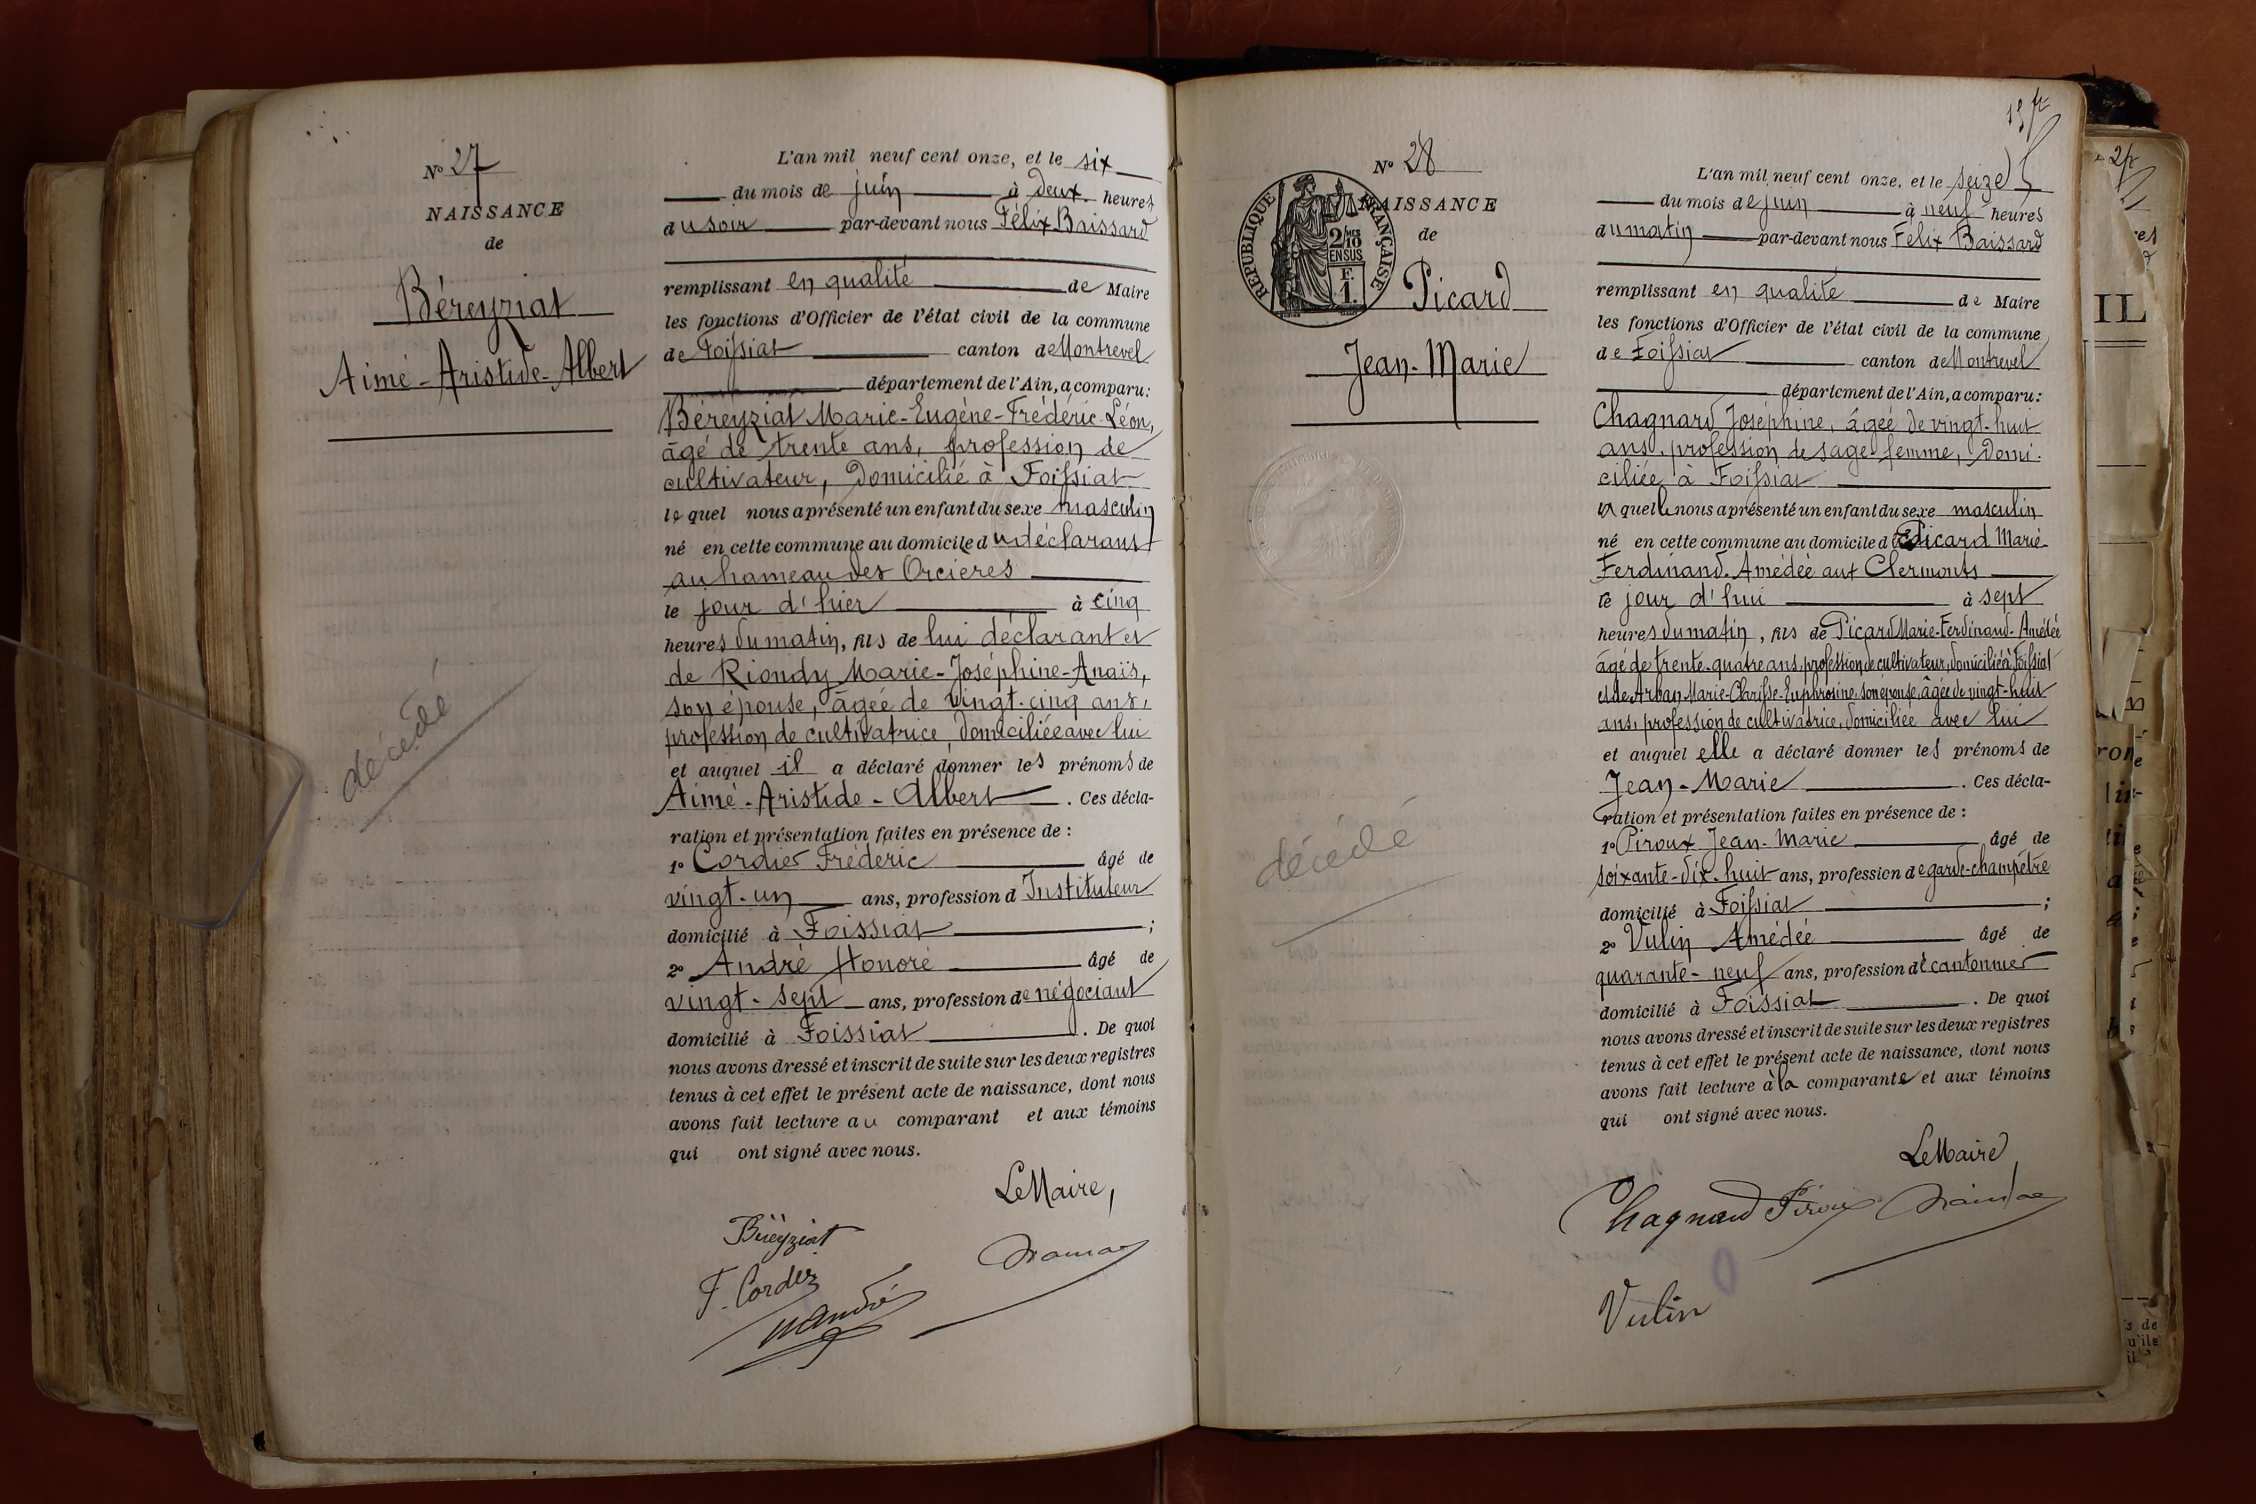 N° 27
NAISSANCE
de
Béreyziat
Aimé-Aristide-Albert
décédé
L'an mil neuf cent onze, et le six
du mois de juin à deux heures
du soir par-devant nous Félix Baissard
remplissant en qualité de Maire
les fonctions d'Officier de l'état civil de la commune
de Foissiat canton de Montrevel
département de l'Ain, a comparu:
Béreyziat Marie-Eugène-Frédéric-Léon,
âgé de trente ans, profession de
cultivateur, domicilié à Foissiat
le quel nous a présenté un enfant du sexe masculin
né en cette commune au domicile du déclarant
au hameau des Orcières
le jour d'hier à cinq
heures du matin, fils de lui déclarant et
de Riondy Marie-Joséphine-Anaïs,
son épouse, âgée de vingt-cinq ans,
profession de cultivatrice, domiciliée avec lui
et auquel il a déclaré donner les prénoms de
Aimé-Aristide-Albert. Ces décla-
ration et présentation faites en présence de :
1° Cordier Frédéric âgé de
vingt-un ans, profession d'Instituteur
domicilié à Foissiat ;
2° André Honoré âgé de
vingt-sept ans, profession de négociant
domicilié à Foissiat. De quoi
nous avons dressé et inscrit de suite sur les deux registres
tenus à cet effet le présent acte de naissance, dont nous
avons fait lecture au comparant et aux témoins
qui ont signé avec nous.
Le Maire,
Béreyziat
F. Cordier
H André
13
N° 28
NAISSANCE
de
RÉPUBLIQUE FRANÇAISE
2/10
EN SUS
F.
1.
Picard
Jean-Marie
décédé
L'an mil neuf cent onze, et le seize
du mois de juin à neuf heures
du matin par-devant nous Félix Baissard
remplissant en qualité de Maire
les fonctions d'Officier de l'état civil de la commune
de Foissiat canton de Montrevel
département de l'Ain, a comparu:
Chagnard Joséphine, âgée de vingt-huit
ans, profession de sage femme, domi-
ciliée à Foissiat
la quelle nous a présenté un enfant du sexe masculin
né en cette commune au domicile de Picard Marie
Ferdinand-Amédée aux Clermonts
le jour d'hui à sept
heures du matin, fils de Picard Marie-Ferdinand-Amédée
âgé de trente-quatre ans, profession de cultivateur, domicilié à Foissiat
et de Arban Marie-Clarisse-Euphrosine, son épouse, âgée de vingt-huit
ans, profession de cultivatrice, domiciliée avec lui
et auquel elle a déclaré donner les prénoms de
Jean-Marie. Ces décla-
ration et présentation faites en présence de :
1° Piroux Jean-Marie âgé de
soixante-dix-huit ans, profession de garde-champêtre
domicilié à Foissiat ;
2° Vulin Amédée âgé de
quarante-neuf ans, profession de cantonnier
domicilié à Foissiat. De quoi
nous avons dressé et inscrit de suite sur les deux registres
tenus à cet effet le présent acte de naissance, dont nous
avons fait lecture à la comparante et aux témoins
qui ont signé avec nous.
Le Maire
Chagnard Piroux
Vulin
IL